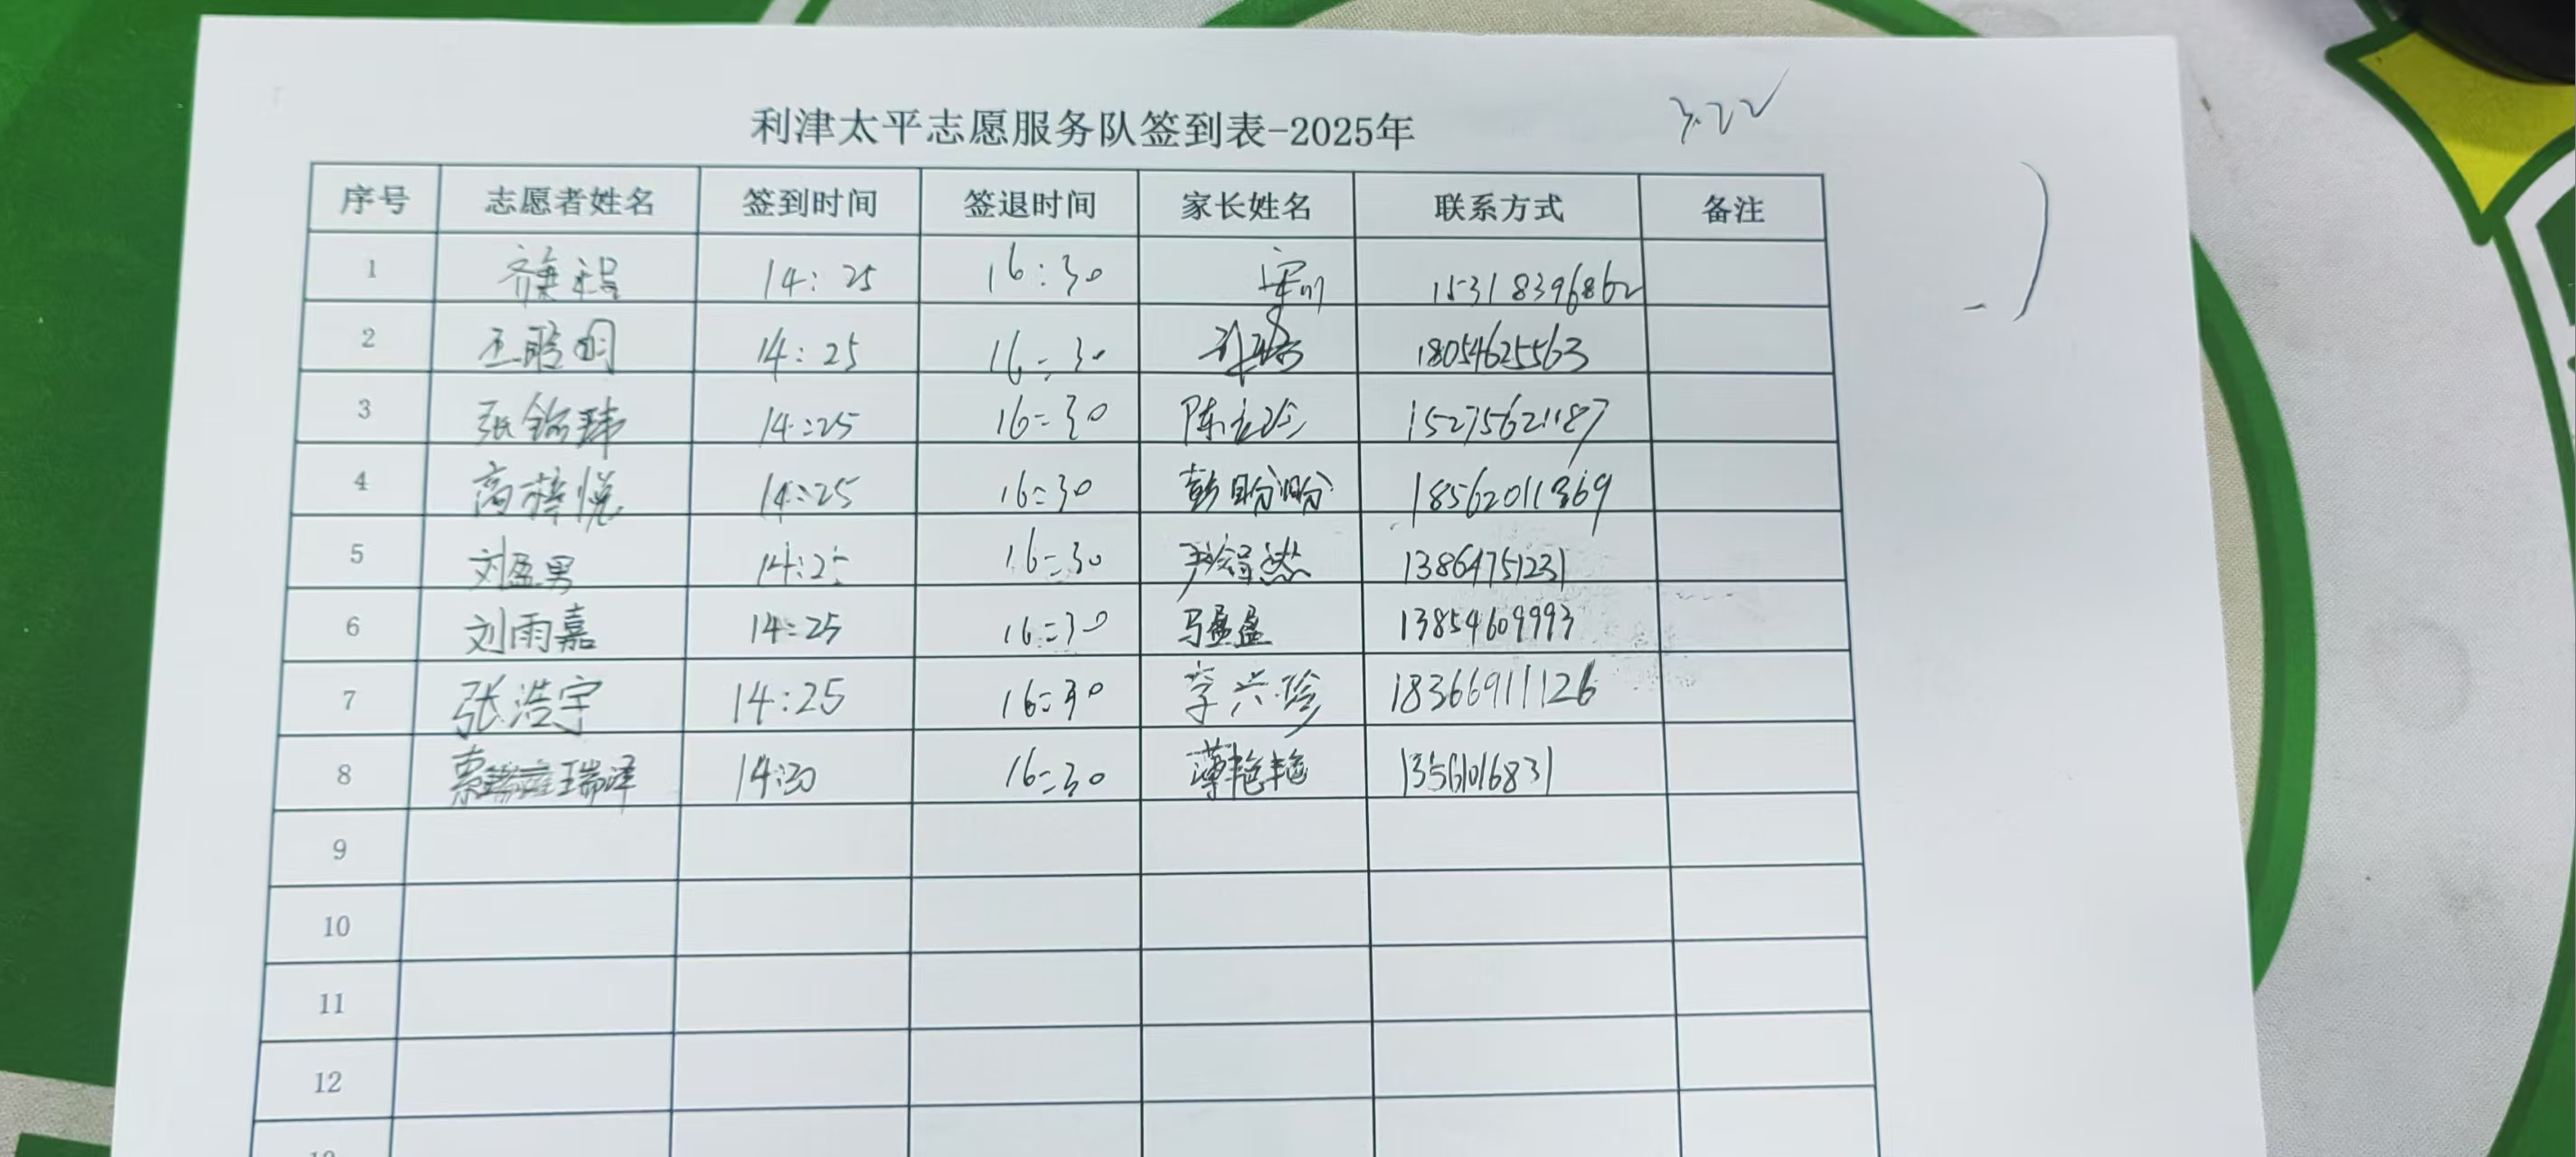 利津太平志愿服务队签到表-2025年 3.22
序号 志愿者姓名 签到时间 签退时间 家长姓名 联系方式 备注
1 14:25 16:30 15318396862
2 14:25 16:30 18054625563
3 张铭玮 14:25 16:30 15275621187
4 高梓悦 14:25 16:30 彭盼盼 18562011369
5 刘盈男 14:25 16:30 13864751231
6 刘雨嘉 14:25 16:30 马盈盈 13854609993
7 张浩宇 14:25 16:30 李兴珍 18366911126
8 瑞泽 14:30 16:30 薄艳艳 13561016831
9
10
11
12